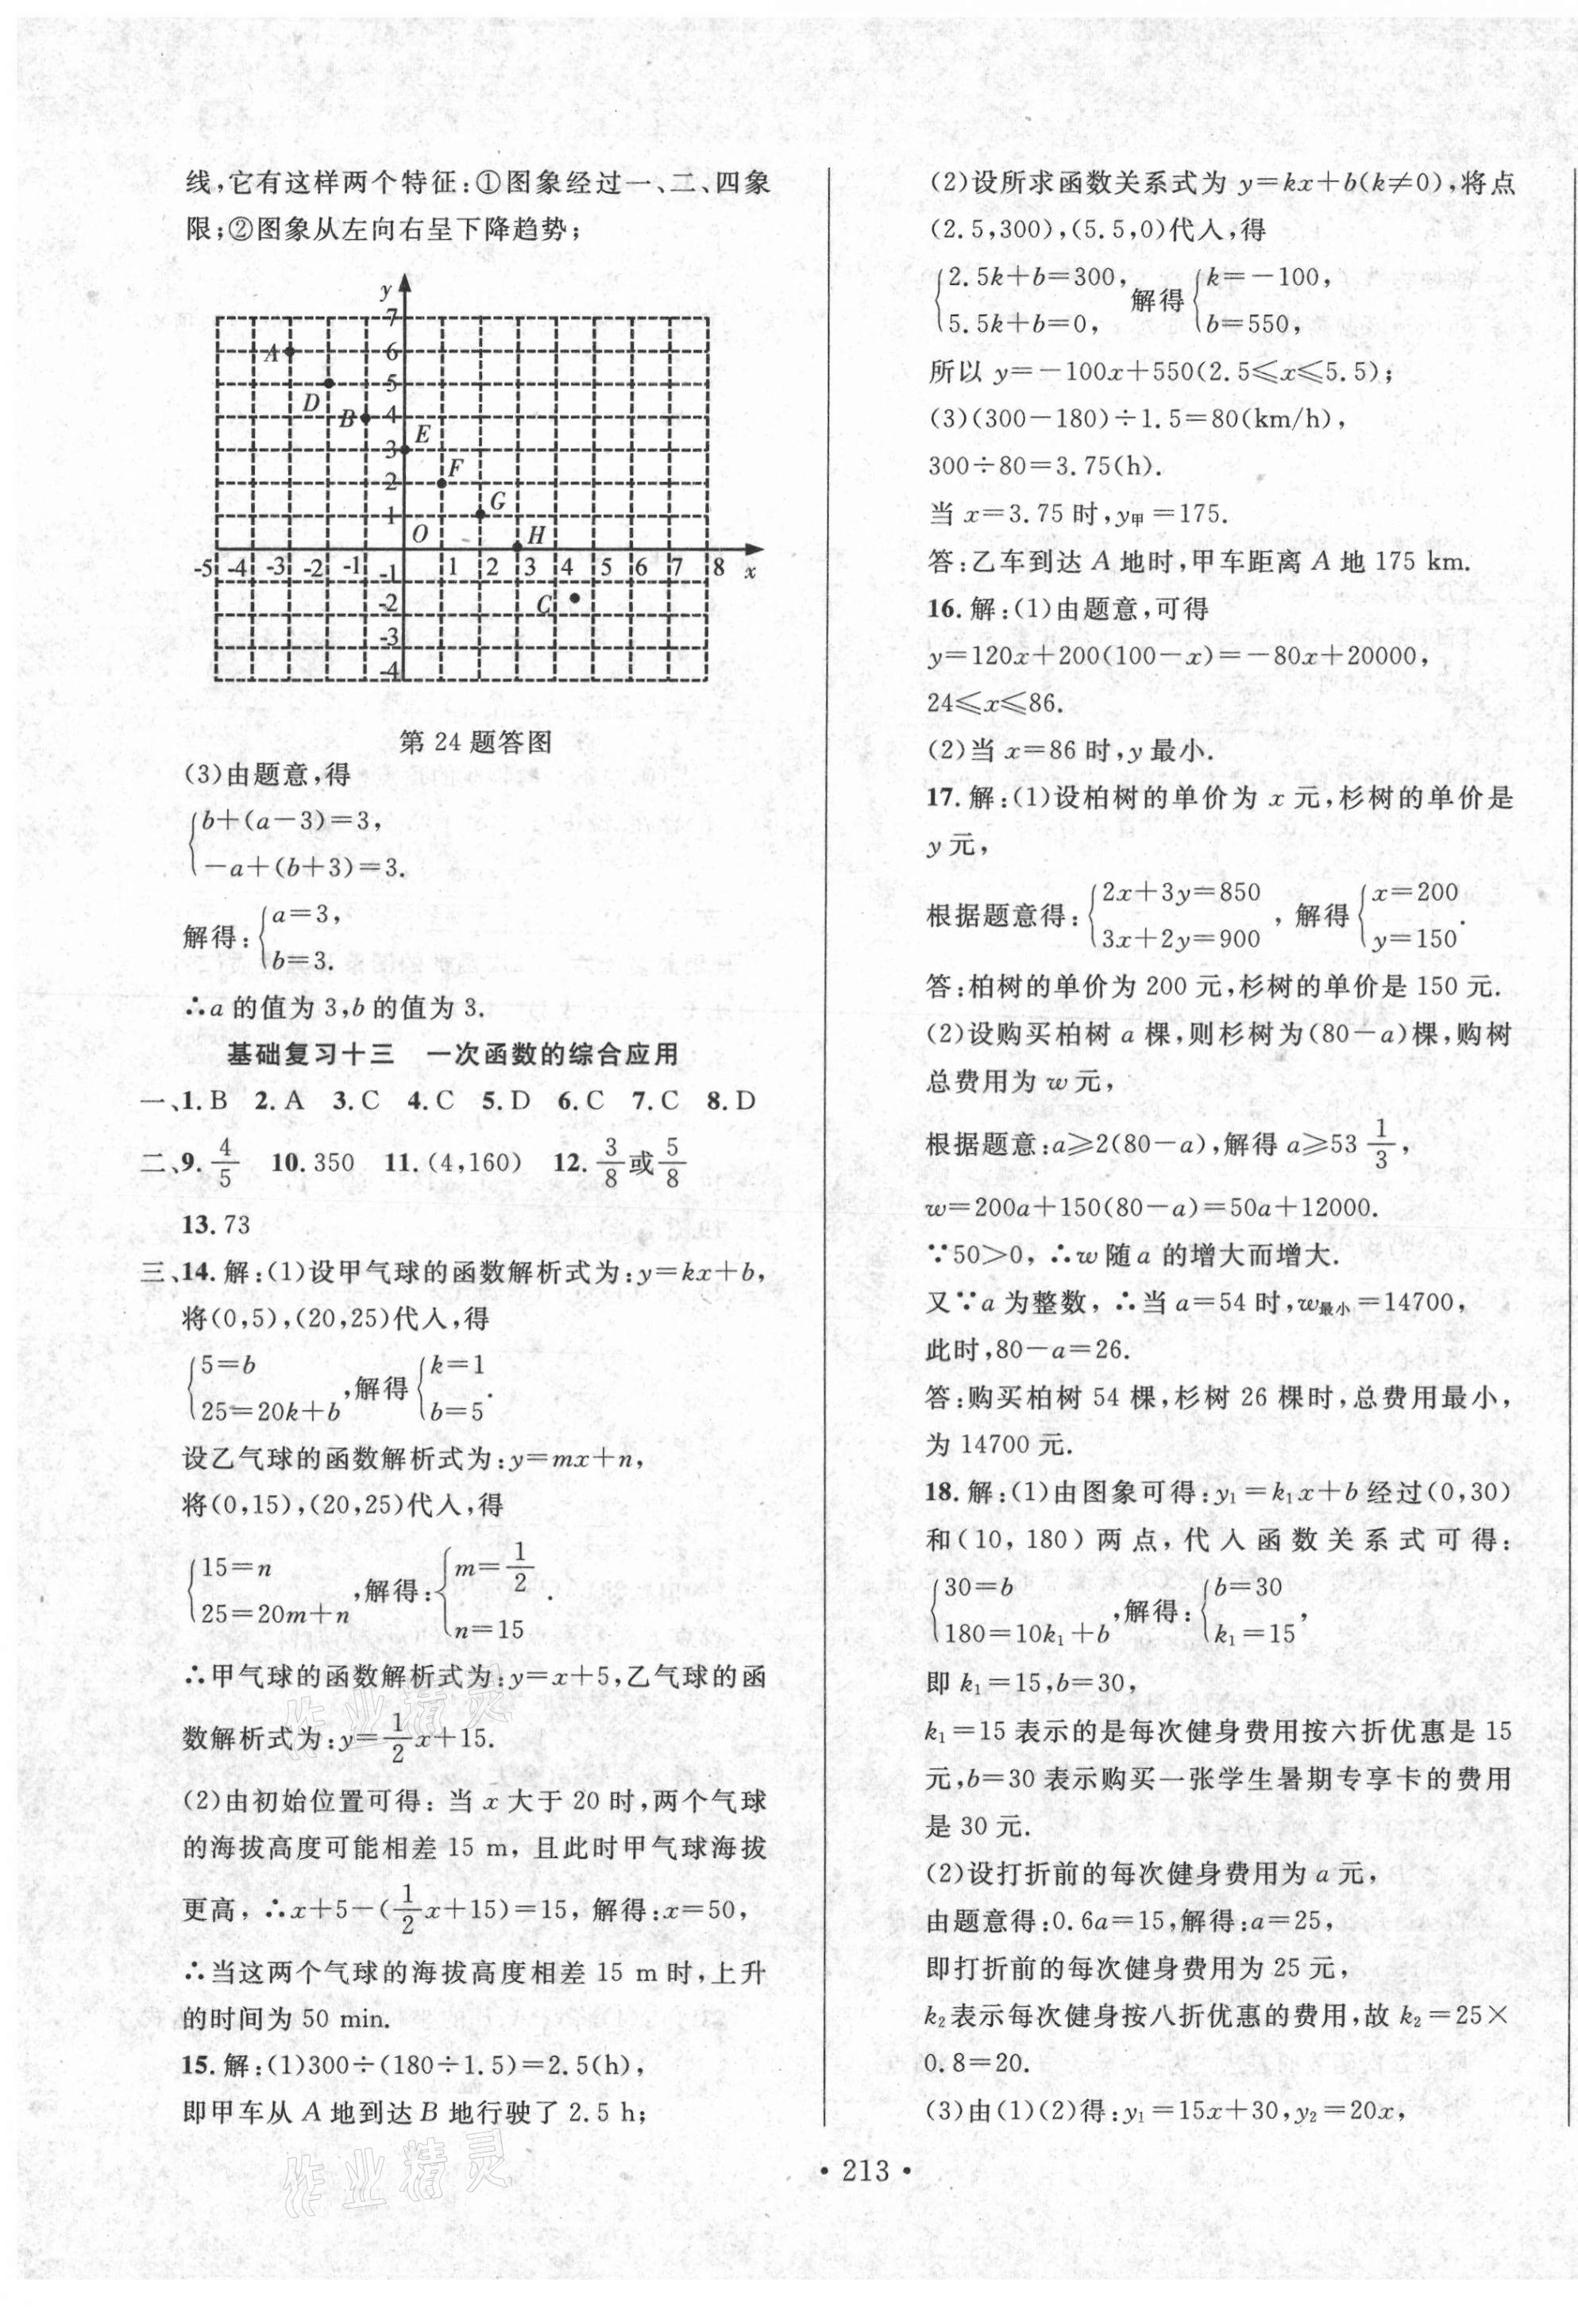 线,它有这样两个特征:①图象经过一、二、四象
限;②图象从左向右呈下降趋势;
y
7
A 6
5
D
B 4
E
3
F
2
G
1
O H
-5 -4 -3 -2 -1 -1 1 2 3 4 5 6 7 8 x
-2 C
-3
-4
第 24 题答图
(3)由题意,得
{b+(a-3)=3,
-a+(b+3)=3.
解得:{a=3,
b=3.
∴a 的值为 3,b 的值为 3.
基础复习十三 一次函数的综合应用
一、1. B 2. A 3. C 4. C 5. D 6. C 7. C 8. D
二、9. 4/5 10. 350 11. (4,160) 12. 3/8 或 5/8
13. 73
三、14. 解:(1)设甲气球的函数解析式为:y=kx+b,
将(0,5),(20,25)代入,得
{5=b
25=20k+b ,解得 {k=1
b=5 .
设乙气球的函数解析式为:y=mx+n,
将(0,15),(20,25)代入,得
{15=n
25=20m+n ,解得:{m=1/2
n=15 .
∴甲气球的函数解析式为:y=x+5,乙气球的函
数解析式为:y=1/2x+15.
(2)由初始位置可得:当 x 大于 20 时,两个气球
的海拔高度可能相差 15 m,且此时甲气球海拔
更高,∴x+5-(1/2x+15)=15,解得:x=50,
∴当这两个气球的海拔高度相差 15 m 时,上升
的时间为 50 min.
15. 解:(1)300÷(180÷1.5)=2.5(h),
即甲车从 A 地到达 B 地行驶了 2.5 h;
(2)设所求函数关系式为 y=kx+b(k≠0),将点
(2.5,300),(5.5,0)代入,得
{2.5k+b=300,
5.5k+b=0, 解得 {k=-100,
b=550,
所以 y=-100x+550(2.5⩽x⩽5.5);
(3)(300-180)÷1.5=80(km/h),
300÷80=3.75(h).
当 x=3.75 时,y甲=175.
答:乙车到达 A 地时,甲车距离 A 地 175 km.
16. 解:(1)由题意,可得
y=120x+200(100-x)=-80x+20000,
24⩽x⩽86.
(2)当 x=86 时,y 最小.
17. 解:(1)设柏树的单价为 x 元,杉树的单价是
y 元,
根据题意得:{2x+3y=850
3x+2y=900 ,解得 {x=200
y=150 .
答:柏树的单价为 200 元,杉树的单价是 150 元.
(2)设购买柏树 a 棵,则杉树为(80-a)棵,购树
总费用为 w 元,
根据题意:a⩾2(80-a),解得 a⩾53 1/3,
w=200a+150(80-a)=50a+12000.
∵50>0,∴w 随 a 的增大而增大.
又∵a 为整数,∴当 a=54 时,w最小=14700,
此时,80-a=26.
答:购买柏树 54 棵,杉树 26 棵时,总费用最小,
为 14700 元.
18. 解:(1)由图象可得:y₁=k₁x+b 经过(0,30)
和(10,180)两点,代入函数关系式可得:
{30=b
180=10k₁+b ,解得:{b=30
k₁=15 ,
即 k₁=15,b=30,
k₁=15 表示的是每次健身费用按六折优惠是 15
元,b=30 表示购买一张学生暑期专享卡的费用
是 30 元.
(2)设打折前的每次健身费用为 a 元,
由题意得:0.6a=15,解得:a=25,
即打折前的每次健身费用为 25 元,
k₂表示每次健身按八折优惠的费用,故 k₂=25×
0.8=20.
(3)由(1)(2)得:y₁=15x+30,y₂=20x,
• 213 •
作业精灵
作业精灵